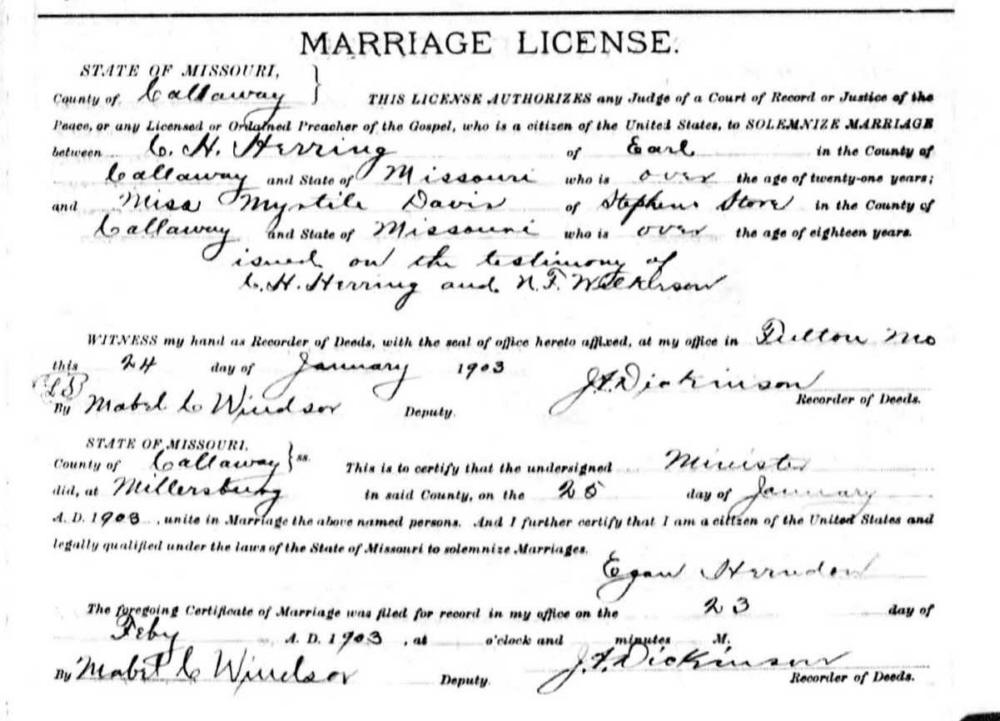 MARRIAGE LICENSE.
STATE OF MISSOURI,
County of Callaway } THIS LICENSE AUTHORIZES any Judge of a Court of Record or Justice of the
Peace, or any Licensed or Ordained Preacher of the Gospel, who is a citizen of the United States, to SOLEMNIZE MARRIAGE
between C. H. Herring of Earl in the County of
Callaway and State of Missouri who is over the age of twenty-one years;
and Miss Myrtile Davis of Stephens Store in the County of
Callaway and State of Missouri who is over the age of eighteen years.
issued on the testimony of
C. H. Herring and N. F. Wilkerson
WITNESS my hand as Recorder of Deeds, with the seal of office hereto affixed, at my office in Fulton Mo
this 24 day of January 1903
LS J. A. Dickinson
By Mabel C Windsor Deputy. Recorder of Deeds.
STATE OF MISSOURI.
County of Callaway } ss. This is to certify that the undersigned Minister
did, at Millersburg in said County, on the 25 day of January
A. D. 1903, unite in Marriage the above named persons. And I further certify that I am a citizen of the United States and
legally qualified under the laws of the State of Missouri to solemnize Marriages.
Egan Herndon
The foregoing Certificate of Marriage was filed for record in my office on the 23 day of
Feby A. D. 1903, at o'clock and minutes M.
By Mabel C Windsor Deputy. J. A. Dickinson Recorder of Deeds.